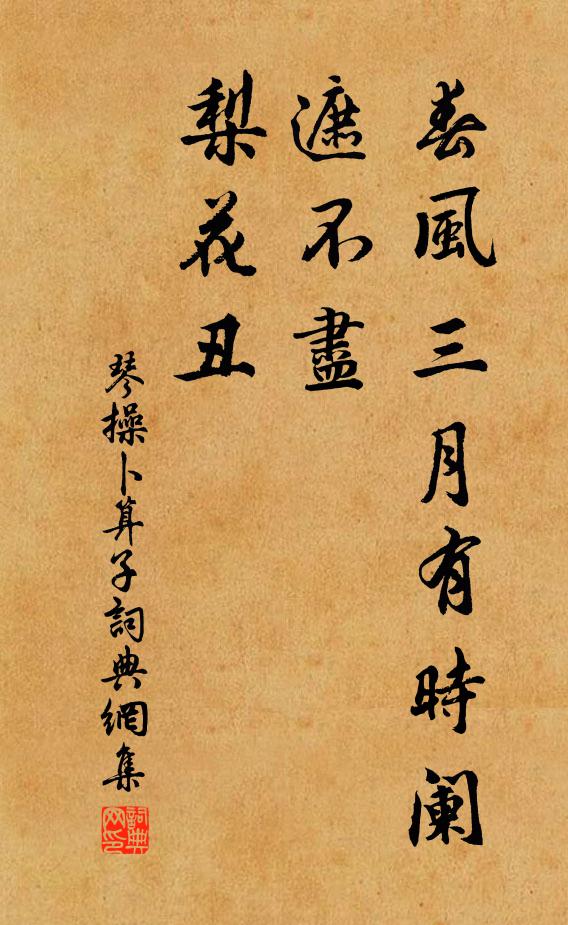 春風三月有時闌
遮不盡
梨花丑
琴操卜算子詞典網集
詞典网印